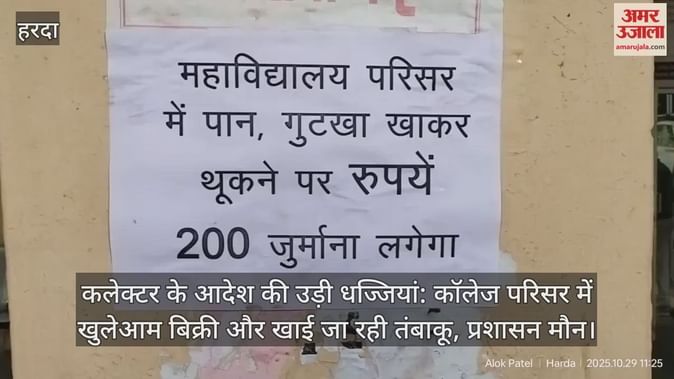 हरदा
अमर
उजाला
amarujala.com
महाविद्यालय परिसर
में पान, गुटखा खाकर
थूकने पर रुपयें
200 जुर्माना लगेगा
कलेक्टर के आदेश की उड़ी धज्जियां: कॉलेज परिसर में
खुलेआम बिक्री और खाई जा रही तंबाकू, प्रशासन मौन।
Alok Patel | Harda | 2025.10.29 11:25